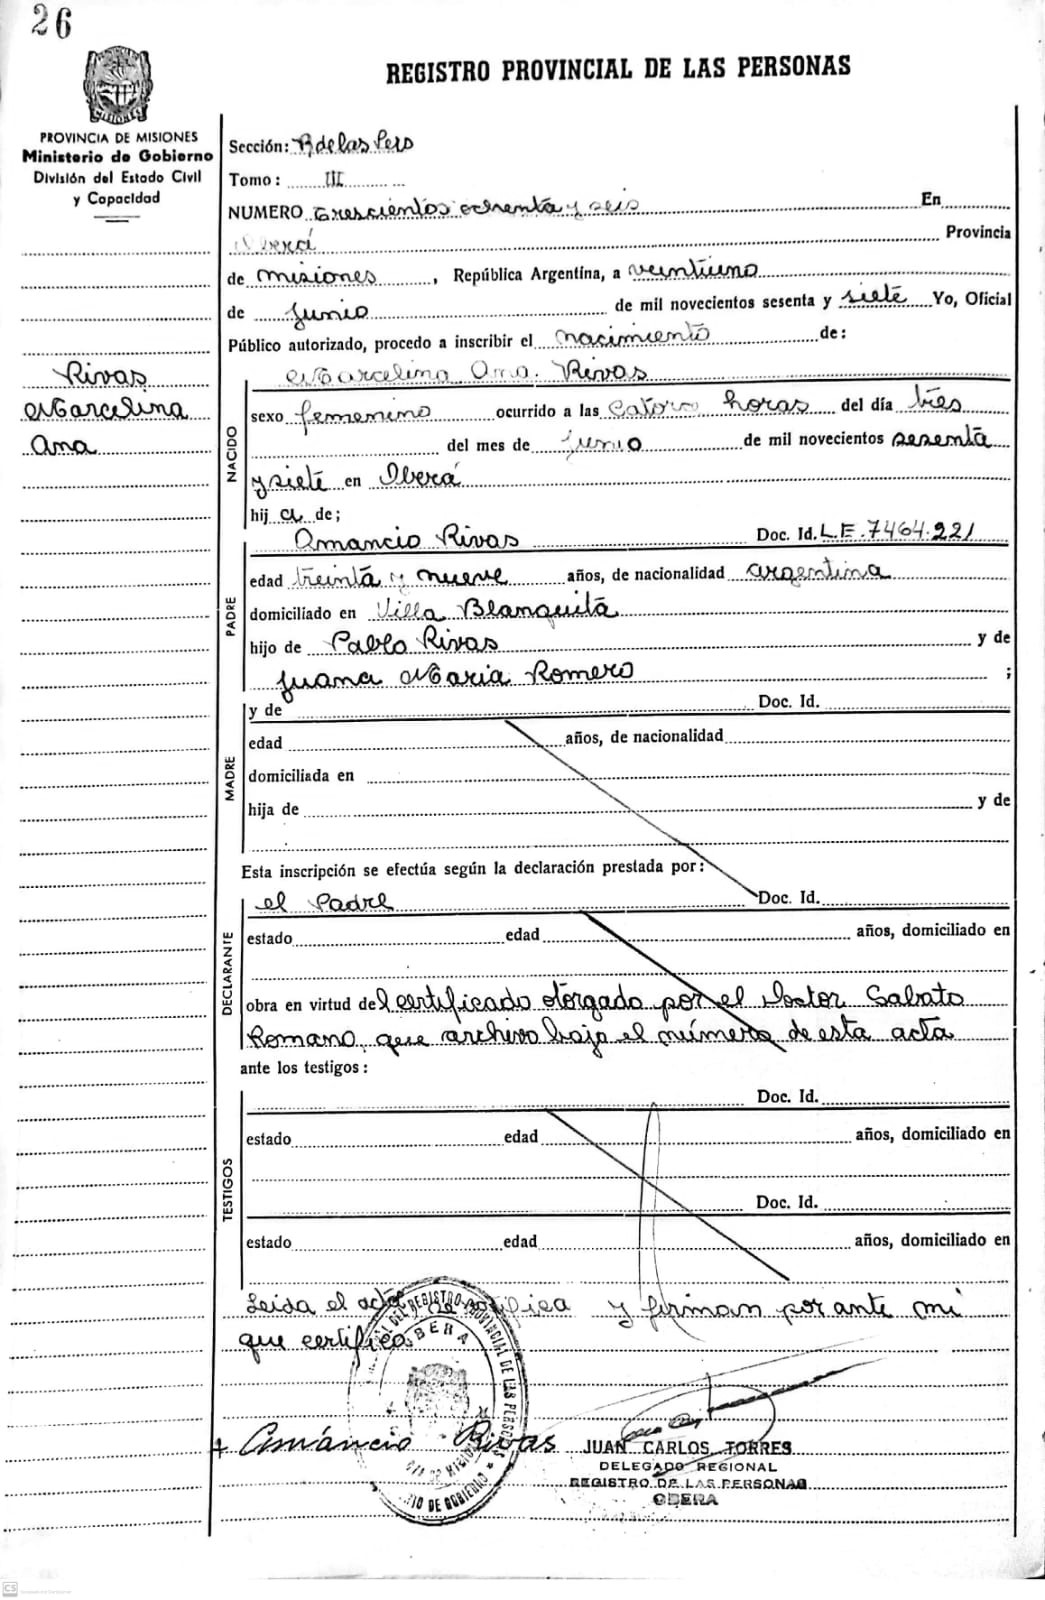 26
REGISTRO PROVINCIAL DE LAS PERSONAS
PROVINCIA DE MISIONES
Ministerio de Gobierno
División del Estado Civil
y Capacidad
Rivas
Marcelina
Ana
Sección: R de las Pers
Tomo: III
NUMERO trescientos ochenta y seis En
Oberá Provincia
de misiones, República Argentina, a veintiuno
de Junio de mil novecientos sesenta y siete Yo, Oficial
Público autorizado, procedo a inscribir el nacimiento de:
Marcelina Ana Rivas
NACIDO
sexo femenino ocurrido a las catorce horas del día tres
del mes de Junio de mil novecientos sesenta
y siete en Oberá
hij a de;
Amancio Rivas Doc. Id. L.E. 7464.221
PADRE
edad treinta y nueve años, de nacionalidad argentina
domiciliado en Villa Blanquita
hijo de Pablo Rivas y de
Juana Maria Romero ;
y de Doc. Id.
MADRE
edad años, de nacionalidad
domiciliada en
hija de y de
Esta inscripción se efectúa según la declaración prestada por:
el Padre Doc. Id.
DECLARANTE
estado edad años, domiciliado en
obra en virtud del certificado otorgado por el Doctor Sabato
Romano, que archivo bajo el número de esta acta
ante los testigos:
Doc. Id.
TESTIGOS
estado edad años, domiciliado en
Doc. Id.
estado edad años, domiciliado en
Leida el acta y firman por ante mi
que certifico
DEL REGISTRO PROVINCIAL DE LAS PERSONAS
OBERA
DE GOBIERNO
Amáncio Rivas
JUAN CARLOS TORRES
DELEGADO REGIONAL
REGISTRO DE LAS PERSONAS
OBERA
CS